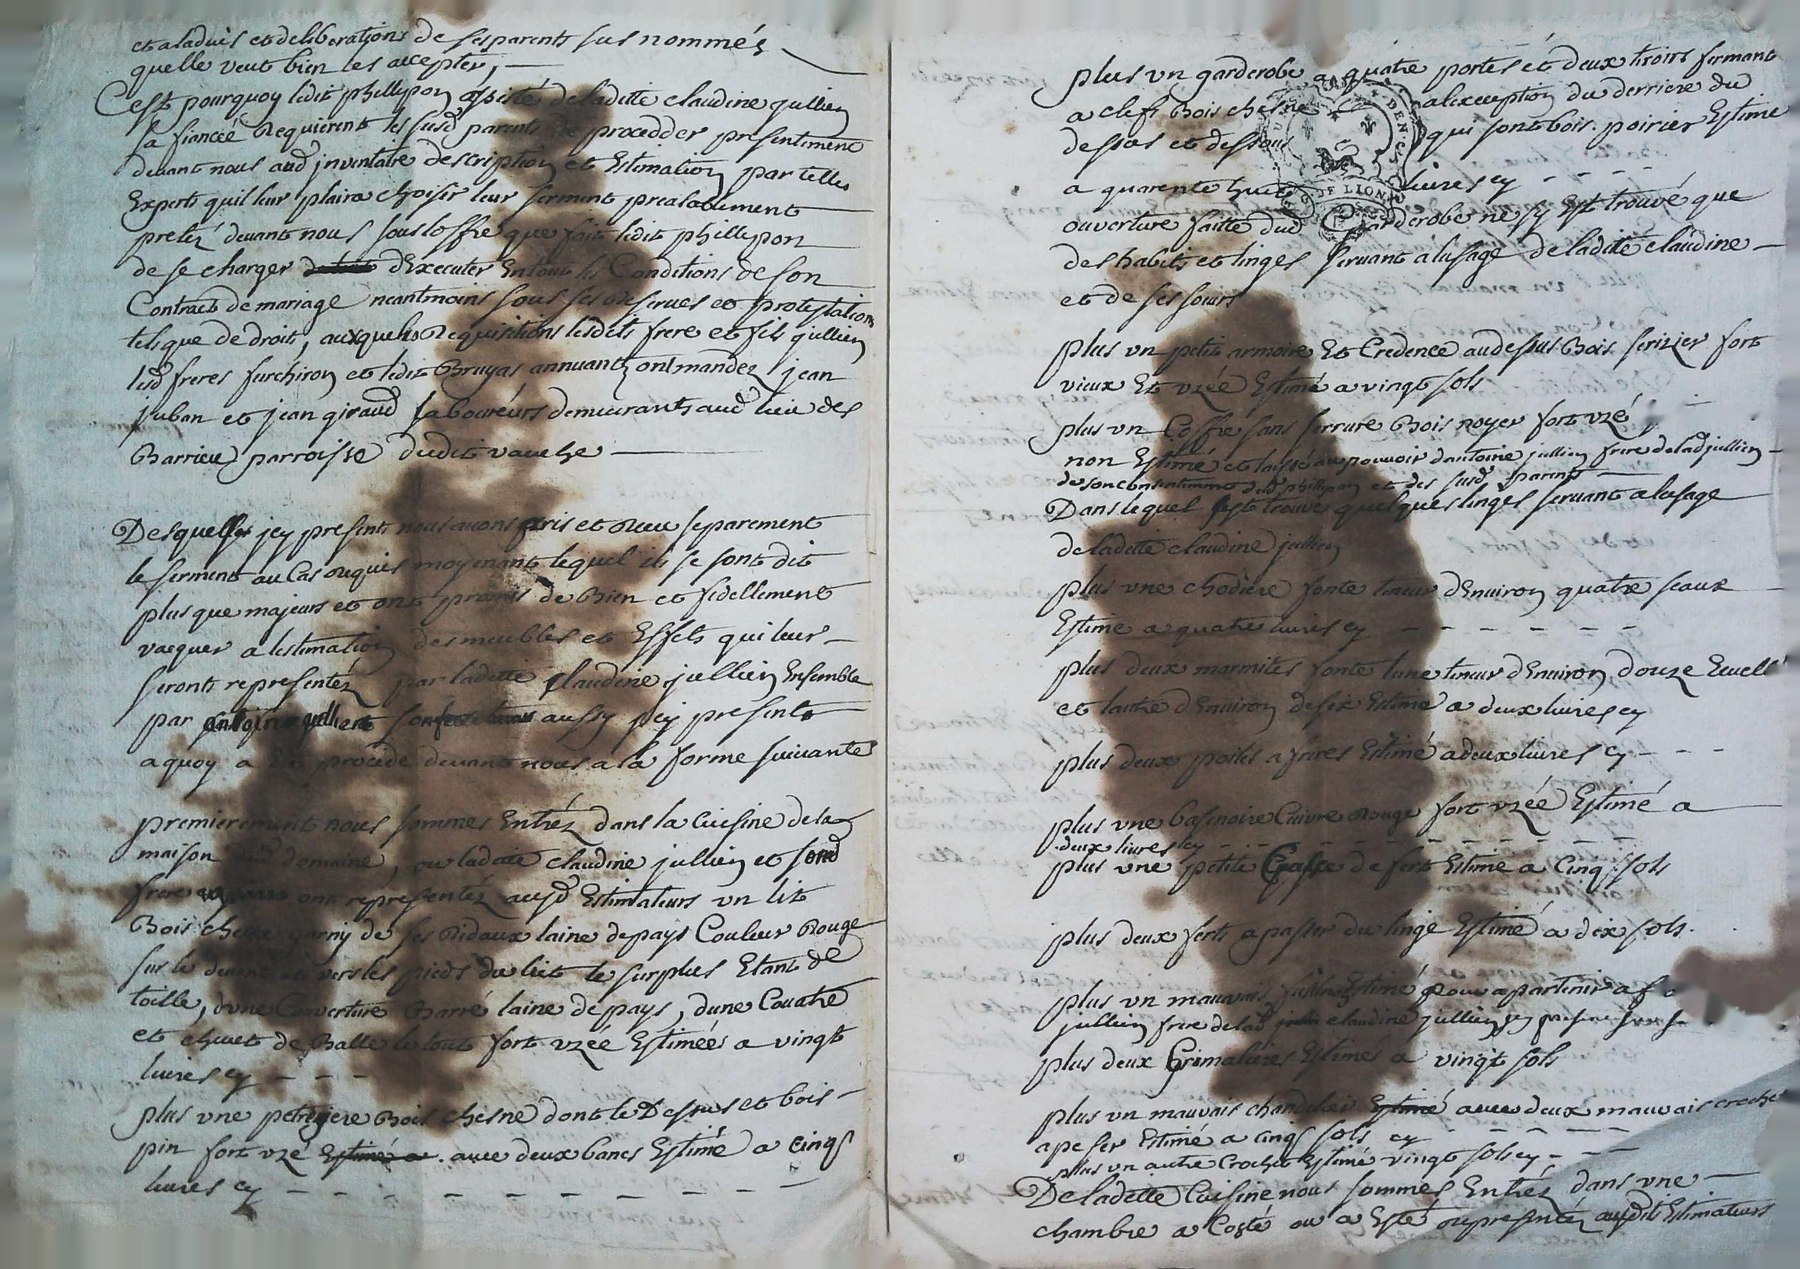 et aladvis et deliberations de ses parents sus nommés
quelle veut bien les accepter,
C'est pourquoy ledit phillypon assisté de laditte claudine jullien
sa fiancée Requierent les susd parents de procedder presentement
devant nous aud jnventaire description et Estimation par telles
Experts quil leur plaira choisir leur serment prealablement
preté devant nous sous loffre que fait ledit phillypon
de se charger dExecuter Entout les Conditions de son
Contract de mariage neantmoins sous ses Reserves et protestations
telsque de droit, auxquelles Requisitions lesdits frere et fils jullien
lesd freres furchiron et ledit Bruyas annuants ont mandez jean
juban et jean giraud laboureurs demeurants aud lieu des
Barrieu parroisse dudit vauche
Desquelles jcy presents nous avons pris et Receu separement
le serment au Cas Requis moyenant lequel ils se sont dit
plus que majeurs et ont promis de Bien et fidellement
vacquer a lestimation des meubles et Effets qui leur
seronts representéz par laditte Claudine jullien Ensemble
par antoine jullient son frere aussy jcy present
a quoy a été procedé devant nous a la forme suivante
premierement nous sommes Entréz dans la Cuisine de la
maison dud domaine, ou laditte claudine jullien et sond
frere ont representéz ausd Estimateurs un lit
Bois chesne garny de ses Ridaux laine de pays Couleur Rouge
sur le devant et vers les pieds du lit le surplus Etant de
toille, dune Couverture Barré laine de pays, dune Couatre
et chevet de Balle le tout fort vzée Estimées a vingt
livres cy - - -
plus vne petrisiere Bois chesne dont le Dessus et bois
pin fort vzé Estimé a avec deux bancs Estimé a cinq
livres cy - - - - - - - - - -
plus vn garderobe a quatre portes et deux tiroirs fermant
a clefs Bois chesne alexception du derriere du
dessus et dessous qui sont bois poirier Estime
a quarente huit livres cy - - - -
ouverture faitte dud Garderobe ne sy Est trouvé que
des habits et linges servant a lusage de ladite claudine
et de ses sœurs
plus vn petit armoire Et Credence audessus Bois serizier fort
vieux Et vzée Estimé a vingt sols
plus vn Coffre sans serrure Bois noyer fort vzé
non Estimé et laissé au pouvoir dantoine jullien frere de lad jullien
de son consentement dud phillypon et des susd parents
Dans lequel sest trouvé quelques linges servant a lusage
de ladette claudine jullien
plus vne chodiere fonte teneur dEnviron quatre seaux
Estimé a quatre livres cy - - - - - -
plus deux marmites fonte lune teneur dEnviron douze Ecuell
et lautre dEnviron de six Estimé a deux livres cy
plus deux poiles a frires Estimé a deux livres cy - - -
plus vne Basinoire Cuivre Rouge fort vzéé Estimé a
deux livres cy - - - - - - - - -
plus vne petite de fert Estimé a Cinq sols
plus deux ferts a passer du linge Estimé a dix sols.
plus vn mauvais fusil Estimé pour apartenir a
jullien frere de lad claudine jullien
plus deux Crimalieres Estimés a vingt sols
plus vn mauvais chandelier Estimé avec deux mauvais crochet
a peser Estimé a cinq sols cy - - - - -
plus vn autre Crochet Estimé vingt sols cy - - -
De ladette Cuisine nous sommes Entréz dans vne
chambre a Costé ou a Esté representéz ausdits Estimateurs
DE LION